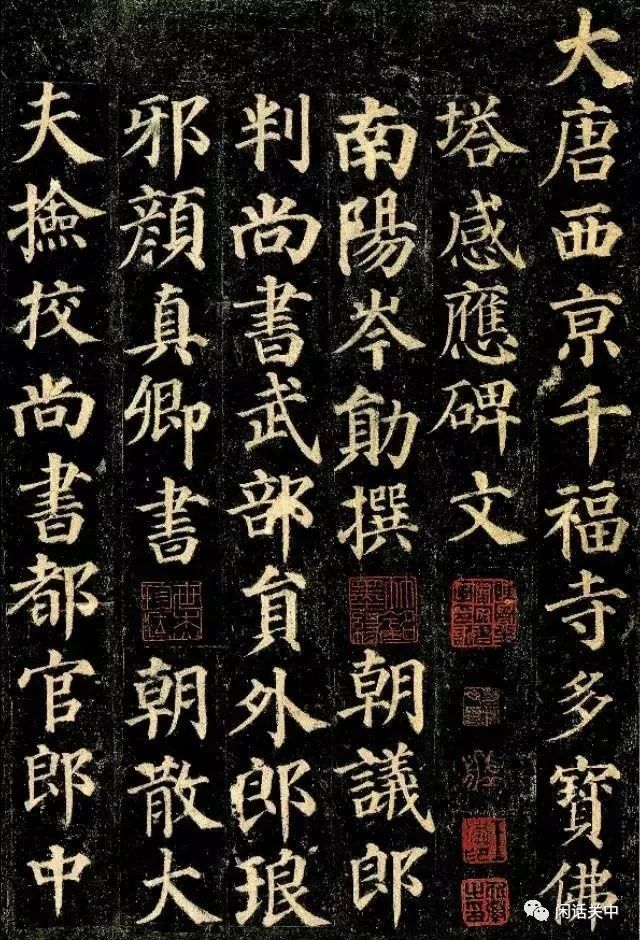 大唐西京千福寺多寶佛
塔感應碑文
南陽岑勛撰 朝議郎
判尚書武部員外郎琅
邪顏真卿書 朝散大
夫撿校尚書都官郎中
闲话关中